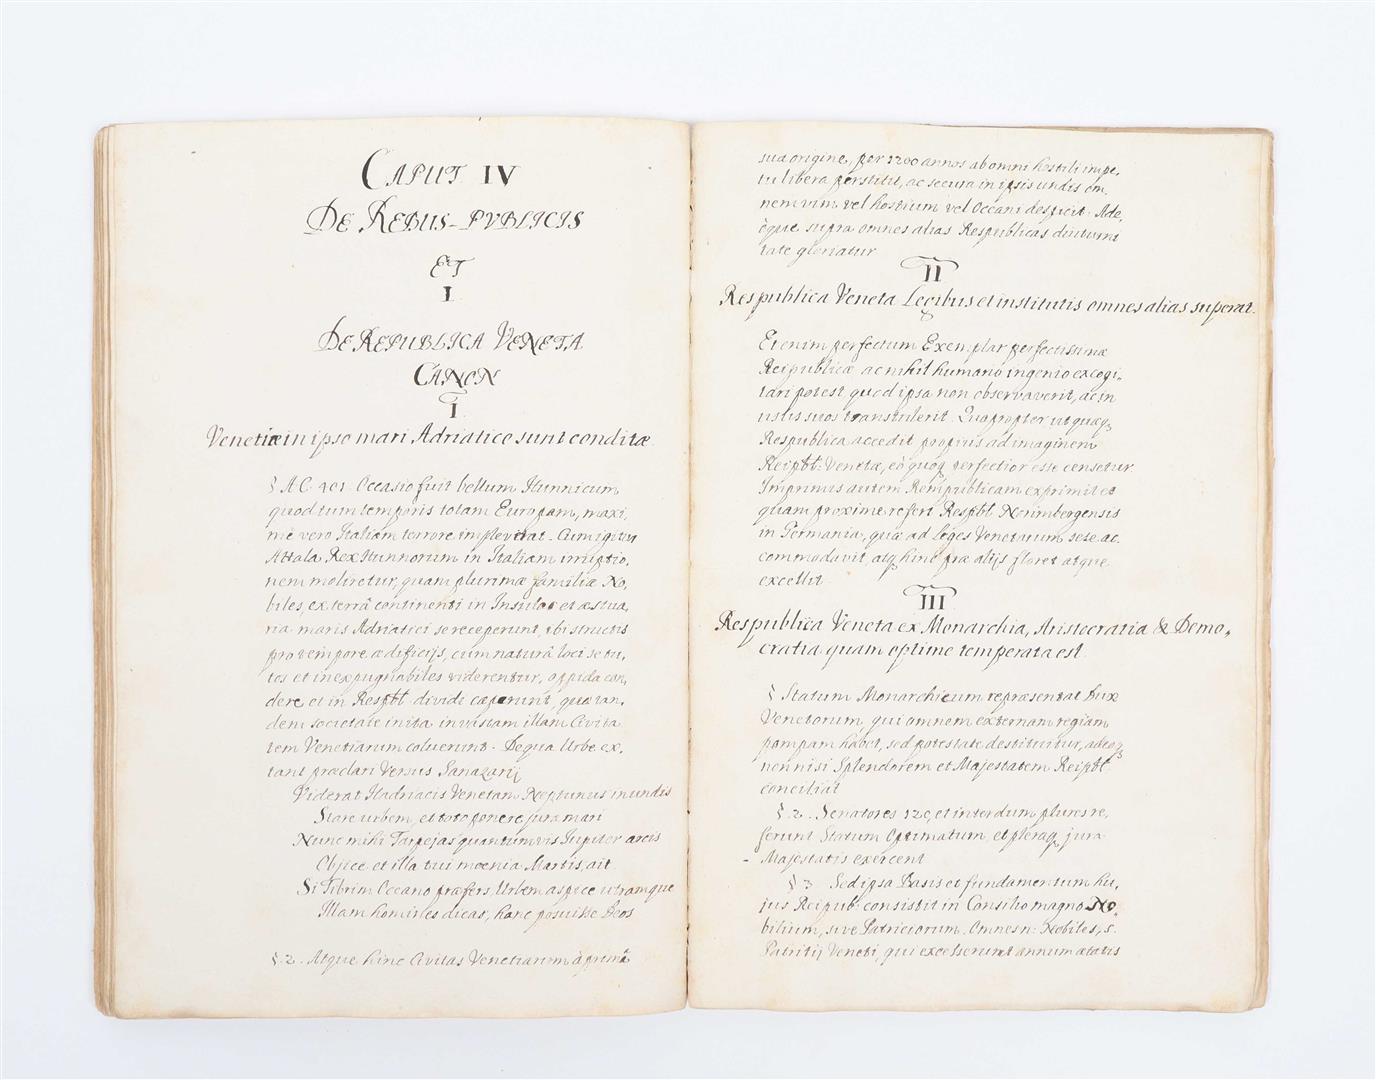 CAPUT IV
DE REBUS-PVBLICIS
ET
I
DE REPUBLICA VENETA
CANON
I
Venetiæ in ipso mari Adriatico sunt conditæ
§ A C 401 Occasio fuit bellum Hunnicum
quod tum temporis totam Europam, maxi,
me vero Italiam terrore impleverat. Cum igitur
Attala Rex Hunnorum in Italiam irruptio,
nem moliretur, quam plurimæ familiæ No,
biles, ex terrâ continenti in Insulas et æstua,
ria maris Adriatici se receperunt, ibi structis
pro tempore ædificijs, cum naturâ loci se tu,
tos et inexpugnabiles viderentur, oppida con,
dere et in Respbl dividi cæperunt, quæ tan,
dem societate inita invistam illam Civita
tem Venetiarum coluerunt. De qua Urbe ex,
tant præclari Versus Sanazarij
Viderat Hadriacis Venetam Neptunus in undis
Stare urbem, et toto ponere jura mari
Nunc mihi Tarpejas quantumvis Jupiter arcis
Objice et illa tui mœnia Martis, ait
Si Tibrim Oceano præfers, Urbem aspice utramque
Illam homines dicas, hanc posuisse Deos
§. 2. Atque hinc Civitas Venetiarum à primâ
sua origine, per 1200 annos ab omni hostili impe,
tu libera perstitit, ac secura in ipsis undis om,
nem vim vel hostium vel Oceani despicit. Ade,
òque supra omnes alias Respublicas diuturni
tate gloriatur
II
Respublica Veneta Legibus et institutis omnes alias superat.
Etenim perfectum Exemplar perfectissimæ
Reipublicæ ac nihil humano ingenio excogi,
tari potest quod ipsa non observaverit, ac in
usus suos transtulerit. Quapropter, ut quæq
Respublica accedit propius ad imaginem
Reipbl: Venetæ, eò quoq perfectior esse censetur.
Imprimis autem Rempublicam exprimit et
quam proxime refert Respbl Norimbergensis
in Germania, quæ ad leges Venetarum sese ac,
commodavit, atq hinc præ alijs floret atque
excellit
III
Respublica Veneta ex Monarchia, Aristocratia & Demo,
cratia quam optime temperata est
§ Statum Monarchicum repræsentat Dux
Venetorum, qui omnem externam regiam
pompam habet, sed potestate destituitur, adeoq
non nisi Splendorem et Majestatem Reipbl
conciliat
§. 2. Senatores 120, et interdum plures re,
ferunt Statum Optimatum, et pleraq jura
Majestatis exercent
§ 3 Sed ipsa Basis et fundamentum hu,
jus Reipub: consistit in Consilio magno No,
bilium, sive Patriciorum. Omnes n: Nobiles, s.
Patritij Veneti, qui excesserunt annum ætatis